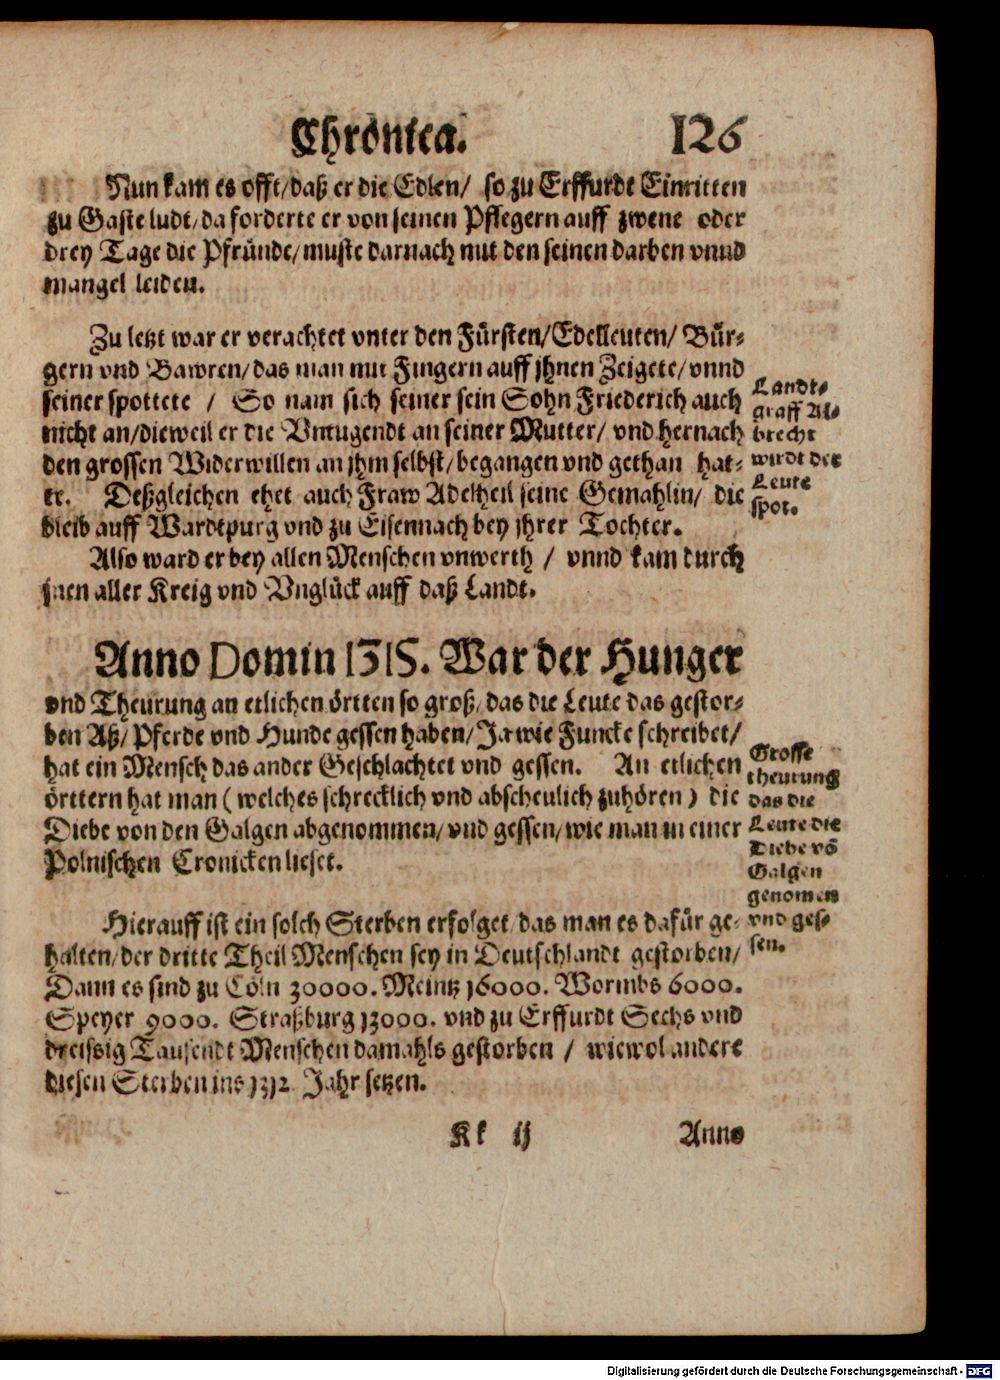 Chrónica. 126
Nun kam es offt/daß er die Edlen/ so zu Erffurdt Einritten
zu Gaste ludt/da forderte er von seinen Pflegern auff zwene oder
drey Tage die Pfründe/muste darnach mit den seinen darben vnnd
mangel leiden.
Zu letzt war er verachtet vnter den Fürsten/Edelleuten/ Bür-
gern vnd Bawren/das man mit Fingern auff jhnen Zeigete/vnnd
seiner spottete / So nam sich seiner sein Sohn Friederich auch
nicht an/dieweil er die Vntugendt an seiner Mutter/ vnd hernach
den grossen Widerwillen an jhm selbst/begangen vnd gethan hat-
te. Deßgleichen thet auch Fraw Adelheil seine Gemahlin/ die
bleib auff Wardtpurg vnd zu Eisennach bey jhrer Tochter.
Landt-
graff Al-
brecht
wirdt der
Leute
spot.
Also ward er bey allen Menschen vnwerth / vnnd kam durch
jnen aller Kreig vnd Vnglück auff daß Landt.
Anno Domin 1315. War der Hunger
vnd Theurung an etlichen örtten so groß/das die Leute das gestor-
ben Aß/Pferde vnd Hunde gessen haben/Ja wie Funcke schreibet/
hat ein Mensch das ander Geschlachtet vnd gessen. An etlichen
örttern hat man (welches schrecklich vnd abscheulich zuhören) die
Diebe von den Galgen abgenommen/vnd gessen/wie man in einer
Polnischen Cronicken lieset.
Grosse
theurung
das die
Leute die
Diebe võ
Galgen
genomen
vnd ges-
sen.
Hierauff ist ein solch Sterben erfolget/das man es dafür ge-
halten/der dritte Theil Menschen sey in Deutschlandt gestorben/
Dann es sind zu Cöln 30000. Meintz 16000. Wormbs 6000.
Speyer 9000. Straßburg 13000. vnd zu Erffurdt Sechs vnd
dreissig Tausendt Menschen damahls gestorben / wiewol andere
diesen Sterben ins 1312 Jahr setzen.
Kk ij Anno
Digitalisierung gefördert durch die Deutsche Forschungsgemeinschaft - DFG